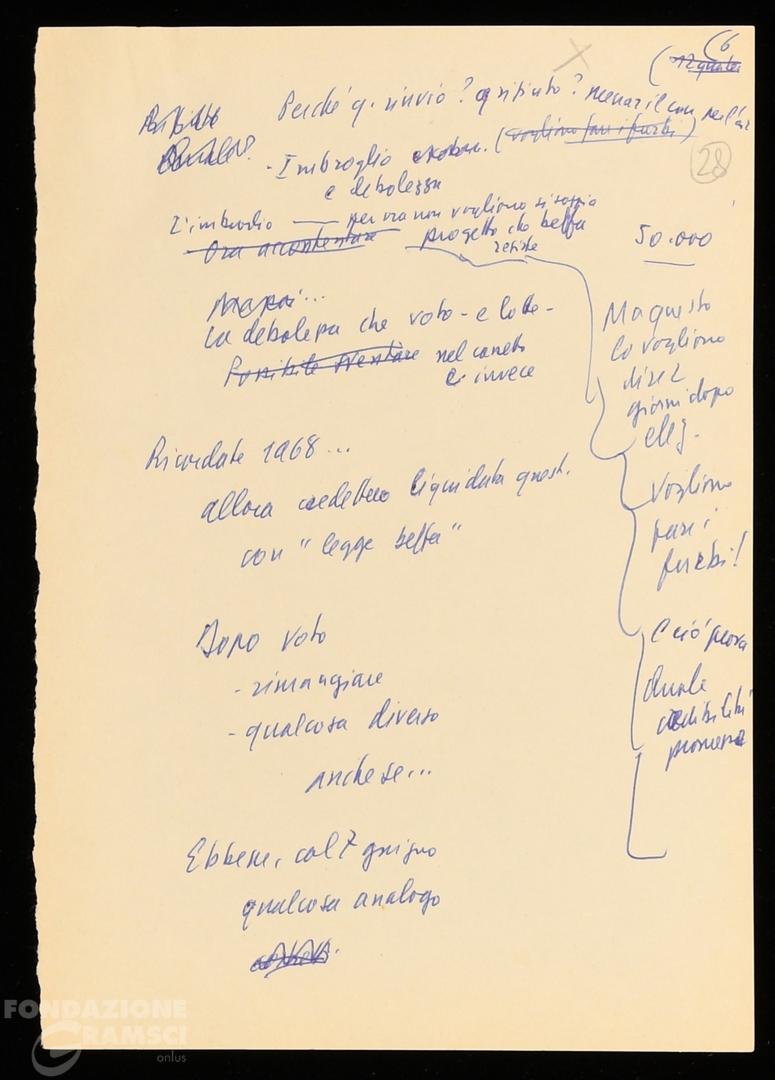 (6
28
Perché q. rinvio? q rifiuto?
- Imbroglio (vogliono fare i furbi)
e debolezza
L'imbroglio — per ora non vogliono si sappia
Ora accontentare progetto che beffa
50.000
La debolezza che voto - e lotte -
Possibile sventare nel
e invece
Ma questo
lo vogliono
dire 2
giorni dopo
elez.
Ricordate 1968...
allora credettero liquidata quest.
con "legge beffa"
Vogliono
fare i
furbi!
Dopo voto
- rimangiare
- qualcosa diverso
anche se...
E ciò prova
Quale
credibilità
promesse
Ebbene, col 7 giugno
qualcosa analogo
FONDAZIONE
GRAMSCI
onlus